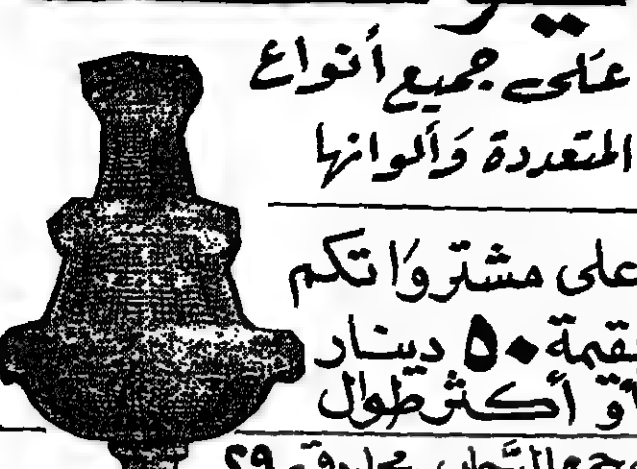 على جميع أنواع
المتعددة وَألوانها
على مشترَواتكم
بقيمة ٥٠ دينار
أو أكثر طوال